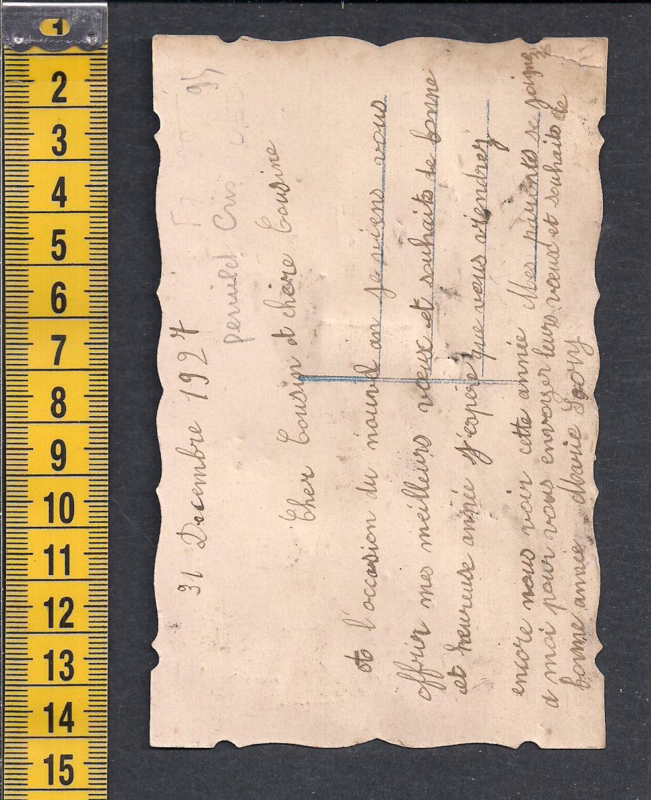 31 Decembre 1927
Cher Cousin et chère Cousine
A l'occasion du nouvel an je viens vous
offrir mes meilleurs voeux et souhaits de bonne
et heureuse année j'espère que vous viendrez
encore nous voir cette année Mes parents se joignez
a moi pour vous envoyer leurs voeux et souhaits de
bonne année Marie
1
2
3
4
5
6
7
8
9
10
11
12
13
14
15